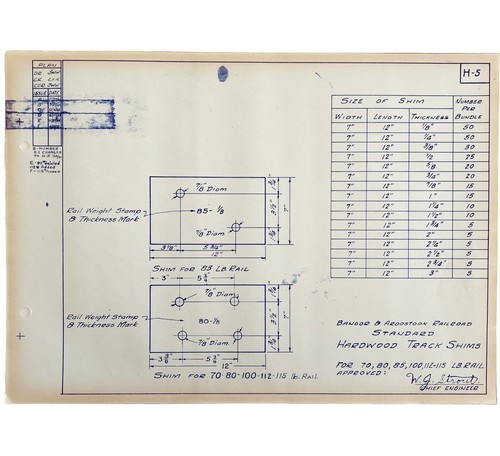 PLAN
H-5
SIZE OF SHIM NUMBER PER BUNDLE
WIDTH LENGTH THICKNESS
7" 12" 1/8" 50
7" 12" 1/4" 50
7" 12" 3/8" 30
7" 12" 1/2 25
7" 12" 5/8 20
7" 12" 3/4" 20
7" 12" 7/8" 15
7" 12" 1" 15
7" 12" 1 1/4" 10
7" 12" 1 1/2" 10
7" 12" 1 3/4" 5
7" 12" 2" 5
7" 12" 2 1/4" 5
7" 12" 2 1/2" 5
7" 12" 2 3/4" 5
7" 12" 3" 5
7/8" Diam
Rail Weight Stamp
& Thickness Mark
85-1/8
7/8" Diam
1 3/4"
3 1/2"
1 3/4"
7"
3 1/8" 5 3/4"
12"
SHIM FOR 85 LB. RAIL
3" 5 3/4
7/8" Diam.
Rail Weight Stamp
& Thickness Mark
80-1/8
7/8" Diam.
1 3/4"
3 1/2"
1 3/4"
7"
5 3/4"
12"
SHIM FOR 70-80-100-112-115 LB. RAIL
BANGOR & AROOSTOOK RAILROAD
STANDARD
HARDWOOD TRACK SHIMS
FOR 70, 80, 85, 100, 112-115 LB. RAIL
APPROVED:
W.J. Strout
CHIEF ENGINEER